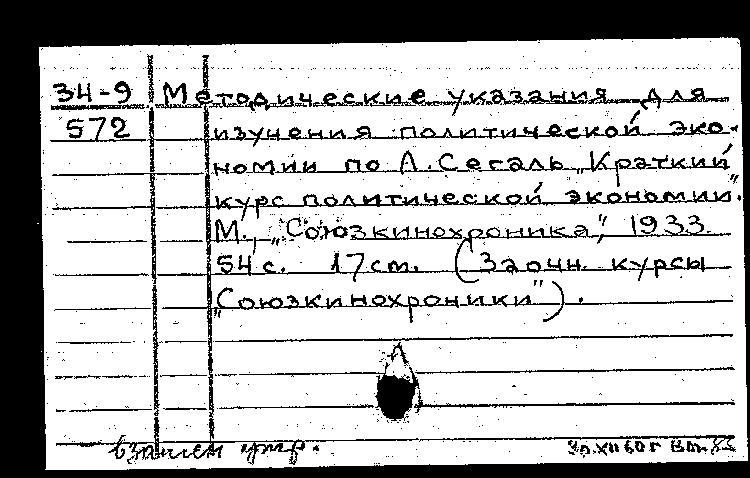 34-9 Методические указания для
572 изучения политической эко-
номии по Л. Сегаль „Краткий
курс политической экономии".
М., „Союзкинохроника", 1933.
54 с. 17 см. (Заочн. курсы
„Союзкинохроники").
взамен утр.